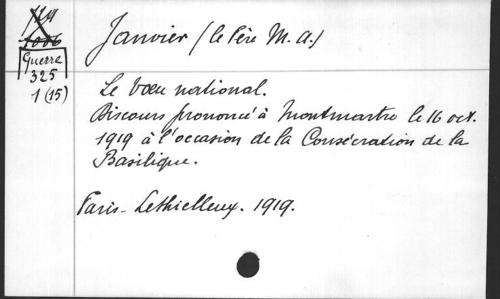 Janvier (le Père M. A.)
Guerre
325
1 (15)
Le vœu national.
Discours prononcé à Montmartre le 16 oct.
1919 à l'occasion de la Consécration de la
Basilique.
Paris - Lethielleux. 1919.